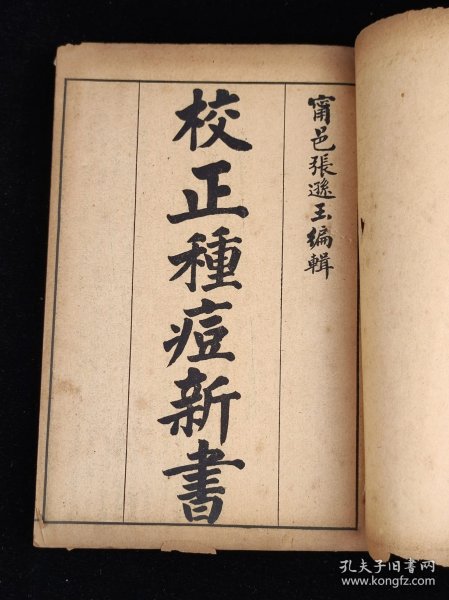 甯邑張遜玉編輯
校正種痘新書
孔夫子旧书网
www.kongfz.com